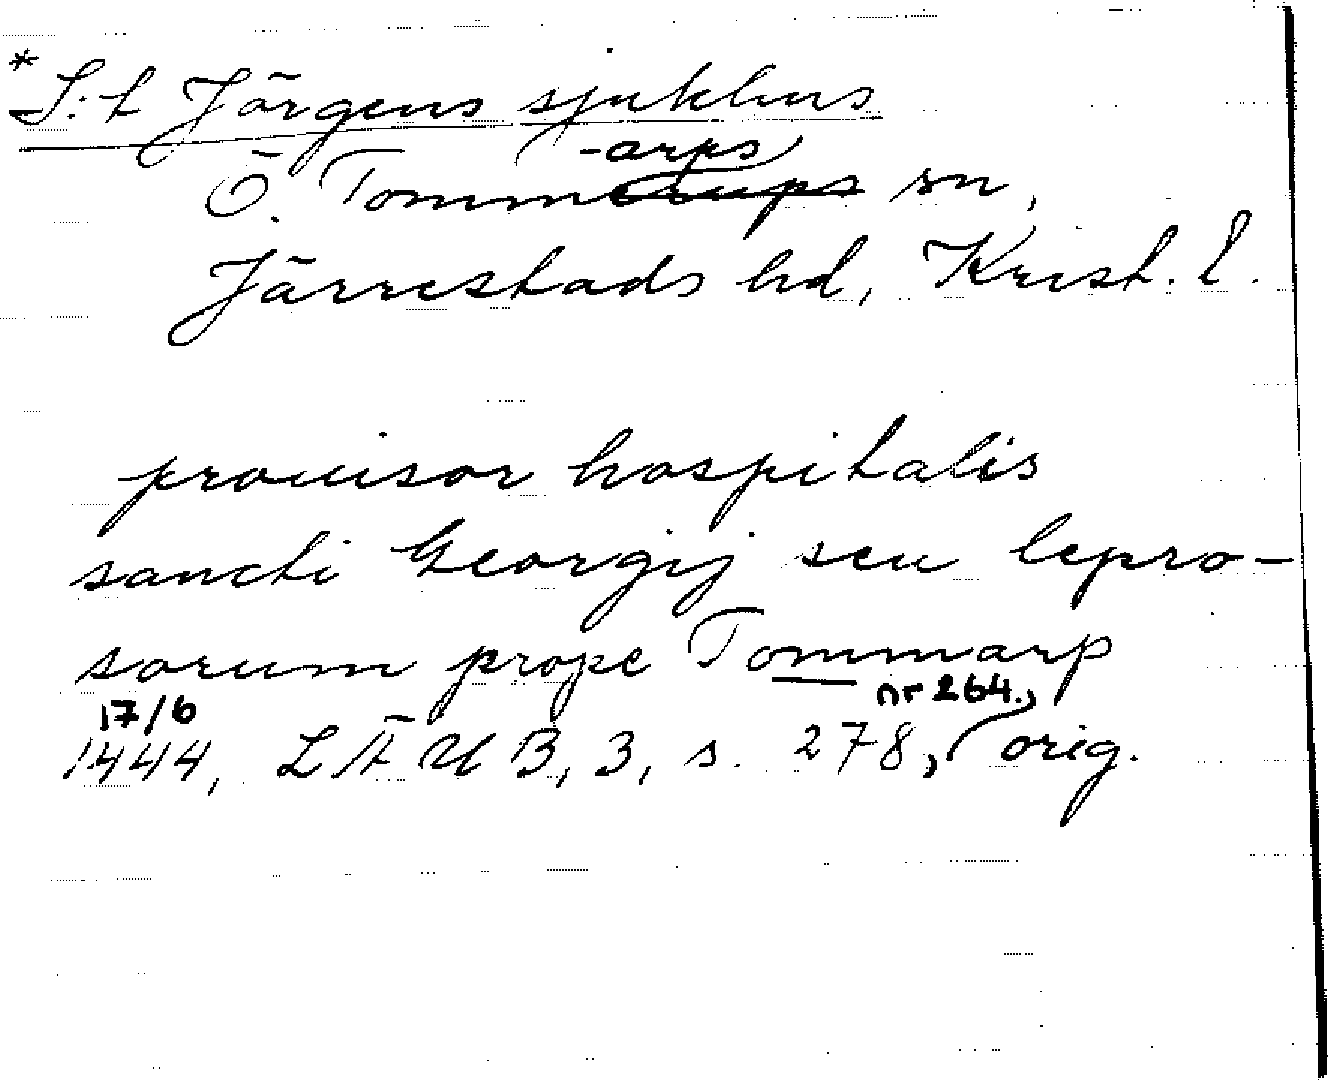 * S:t Jörgens sjukhus
-arps
Ö. Tommerups sn,
Järrestads hd, Krist. l.
prouisor hospitalis
sancti Georgij seu lepro-
sorum prope Tommarp
17/6 nr 264.,
1444, LÄUB, 3, s. 278, orig.